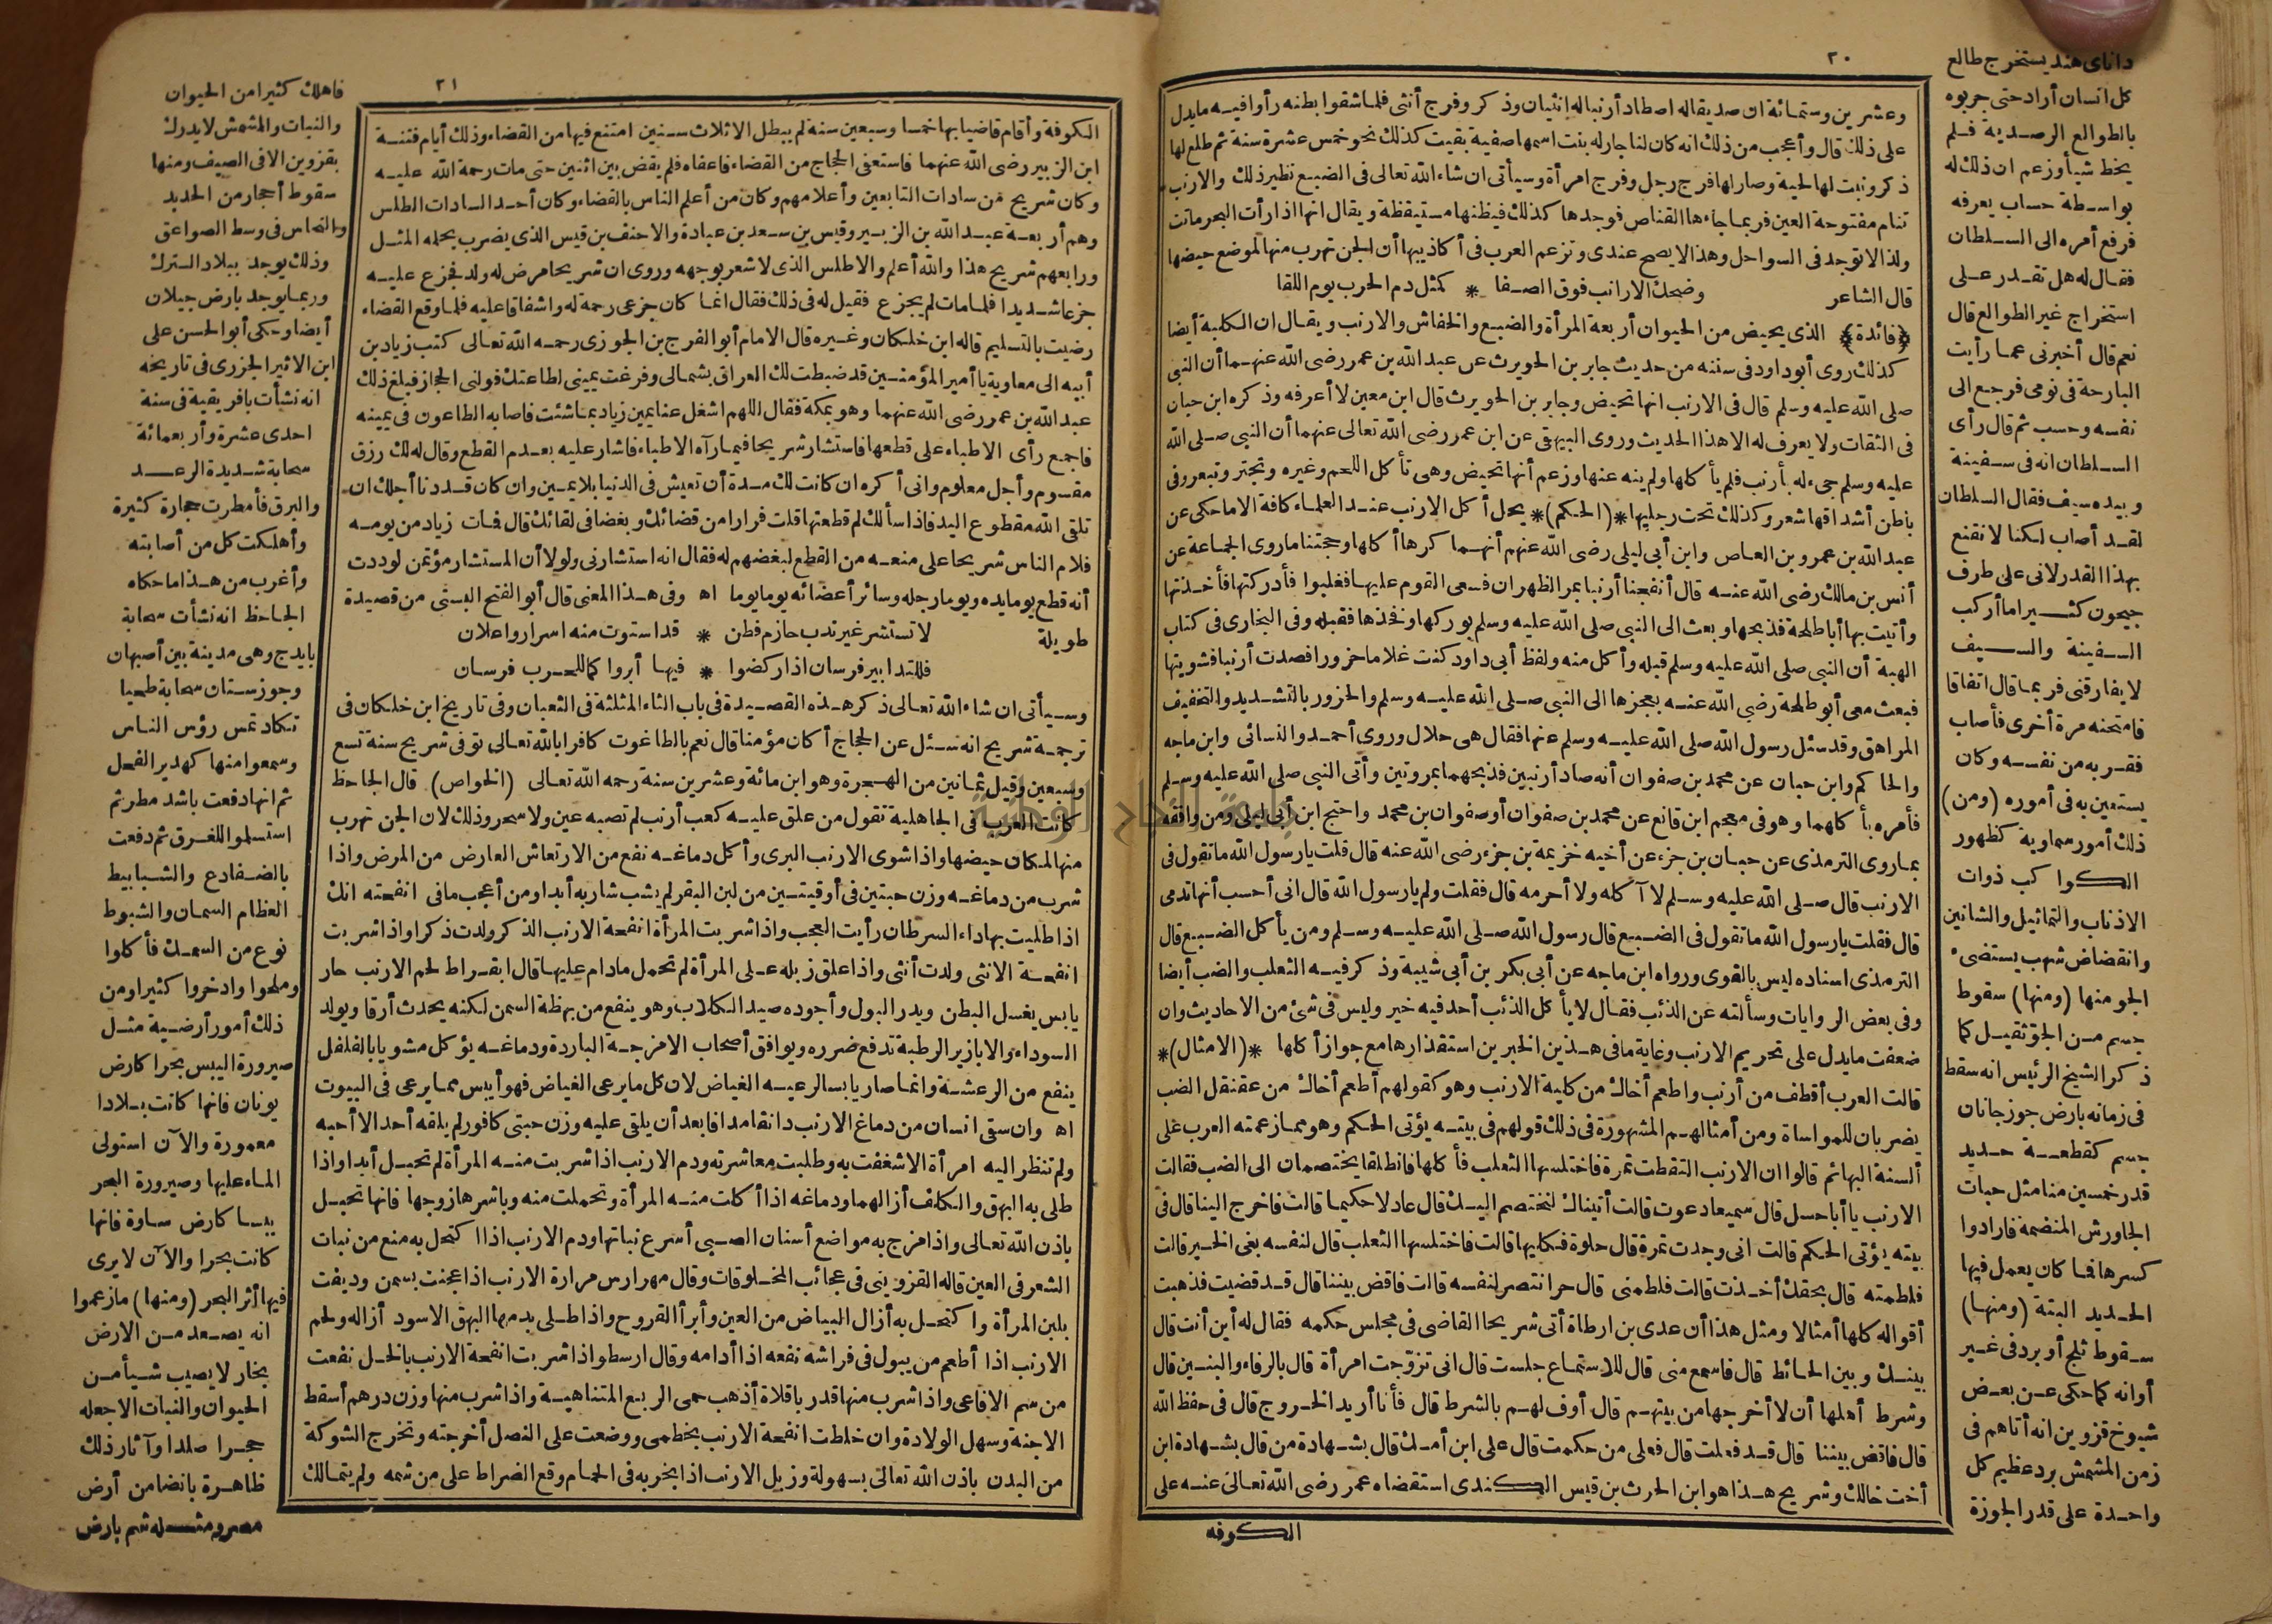 ٢٠
وعشرين وستمائة ان صديقا له اصطاد أرنبا له انثيان وذكر وفرج أنثى فلما شقوا بطنه رأوا فيه ما يدل
على ذلك قال وأعجب من ذلك انه كان لنا جار له بنت اسمها صفية بقيت كذلك نحو خمس عشرة سنة ثم طلع لها
ذكر ونبت لها لحية وصار لها فرج رجل وفرج امرأة وسيأتى ان شاء الله تعالى فى الضبع نظير ذلك والارنب
تنام مفتوحة العين فربما جاءها القناص فوجدها كذلك فيظنها مستيقظة ويقال انها اذا رأت البحر ماتت
ولذا لا توجد فى السواحل وهذا لا يصح عندى وتزعم العرب فى أكاذيبها أن الجن تهرب منها لموضع حيضها
قال الشاعر وضحك الارانب فوق الصفا * كمثل دم الحرب يوم اللقا
﴿فائدة﴾ الذى يحيض من الحيوان أربعة المرأة والضبع والخفاش والارنب ويقال ان الكلبة أيضا
كذلك روى أبو داود فى سننه من حديث جابر بن الحويرث عن عبد الله بن عمر رضى الله عنهما أن النبى
صلى الله عليه وسلم قال فى الارنب انها تحيض وجابر بن الحويرث قال ابن معين لا أعرفه وذكره ابن حبان
فى الثقات ولا يعرف له الا هذا الحديث وروى البيهقى عن ابن عمر رضى الله تعالى عنهما أن النبى صلى الله
عليه وسلم جىء له بأرنب فلم يأكلها ولم ينه عنها وزعم أنها تحيض وهى تأكل اللحم وغيره وتجتر وتبعر وفى
باطن أشداقها شعر وكذلك تحت رجليها *(الحكم)* يحل أكل الارنب عند العلماء كافة الا ما حكى عن
عبد الله بن عمرو بن العاص وابن أبى ليلى رضى الله عنهم أنهما كرها أكلها وحجتنا ما روى الجماعة عن
أنس بن مالك رضى الله عنه قال أنفجنا أرنبا بمر الظهران فسعى القوم عليها فغلبوا فأدركتها فأخذتها
وأتيت بها أبا طلحة فذبحها وبعث الى النبى صلى الله عليه وسلم بوركها وفخذها فقبله وفى البخارى فى كتاب
الهبة أن النبى صلى الله عليه وسلم قبله وأكل منه ولفظ أبى داود كنت غلاما حزورا فصدت أرنبا فشويتها
فبعث معى أبو طلحة رضى الله عنه بعجزها الى النبى صلى الله عليه وسلم والحزور بالتشديد والتخفيف
المراهق وقد سئل رسول الله صلى الله عليه وسلم عنها فقال هى حلال وروى أحمد والنسائى وابن ماجه
والحاكم وابن حبان عن محمد بن صفوان أنه صاد أرنبين فذبحهما بمروتين وأتى النبى صلى الله عليه وسلم
فأمره بأكلهما وهو فى معجم ابن قانع عن محمد بن صفوان أو صفوان بن محمد واحتج ابن أبى ليلى ومن وافقه
بما روى الترمذى عن حبان بن جزء عن أخيه خزيمة بن جزء رضى الله عنه قال قلت يا رسول الله ما تقول فى
الارنب قال صلى الله عليه وسلم لا آكله ولا أحرمه قال فقلت ولم يا رسول الله قال انى أحسب أنها تدمى
قال فقلت يا رسول الله ما تقول فى الضبع قال رسول الله صلى الله عليه وسلم ومن يأكل الضبع قال
الترمذى اسناده ليس بالقوى ورواه ابن ماجه عن أبى بكر بن أبى شيبة وذكر فيه الثعلب والضب أيضا
وفى بعض الروايات وسألته عن الذئب فقال لا يأكل الذئب أحد فيه خير وليس فى شئ من الاحاديث وان
ضعفت ما يدل على تحريم الارنب وغاية ما فى هذين الخبرين استقذارها مع جواز أكلها *(الامثال)*
قالت العرب أقطف من أرنب وأطعم أخاك من كلية الارنب وهو كقولهم أطعم أخاك من عقنقل الضب
يضربان للمواساة ومن أمثالهم المشهورة فى ذلك قولهم فى بيته يؤتى الحكم وهو مما زعمته العرب على
ألسنة البهائم قالوا ان الارنب التقطت تمرة فاختلسها الثعلب فأكلها فانطلقا يختصمان الى الضب فقالت
الارنب يا أبا حسل قال سميعا دعوت قالت أتيناك لنختصم اليك قال عادلا حكيما قالت فاخرج الينا قال فى
بيته يؤتى الحكم قالت انى وجدت تمرة قال حلوة فكليها قالت فاختلسها الثعلب قال لنفسه بغى الخير قالت
فلطمته قال بحقك أخذت قالت فلطمنى قال حر انتصر لنفسه قالت فاقض بيننا قال قد قضيت فذهبت
أقواله كلها أمثالا ومثل هذا أن عدى بن ارطاة أتى شريحا القاضى فى مجلس حكمه فقال له أين أنت قال
بينك وبين الحائط قال فاسمع منى قال للاستماع جلست قال انى تزوجت امرأة قال بالرفاء والبنين قال
وشرط أهلها أن لا أخرجها من بيتهم قال أوف لهم بالشرط قال فأنا أريد الخروج قال فى حفظ الله
قال فاقض بيننا قال قد فعلت قال فعلى من حكمت قال على ابن أمك قال بشهادة من قال بشهادة ابن
أخت خالك وشريح هذا هو ابن الحرث بن قيس الكندى استقضاه عمر رضى الله تعالى عنه على
الكوفه
داناى هند يستخرج طالع
كل انسان أراد حتى جربوه
بالطوالع الرصدية فلم
يخط شيأ وزعم ان ذلك له
بواسطة حساب يعرفه
فرفع أمره الى السلطان
فقال له هل تقدر على
استخراج غير الطوالع قال
نعم قال أخبرنى عما رأيت
البارحة فى نومى فرجع الى
نفسه وحسب ثم قال رأى
السلطان انه فى سفينة
وبيده سيف فقال السلطان
لقد أصاب لكنا لا نقنع
بهذا القدر لانى على طرف
جيحون كثيرا ما أركب
السفينة والسيف
لا يفارقنى فربما قال اتفاقا
فامتحنه مرة أخرى فأصاب
فقربه من نفسه وكان
يستعين به فى أموره (ومن)
ذلك أمور سماوية كظهور
الكواكب ذوات
الاذناب والتماثيل والشانين
وانقضاض شهب يستضىء
الجو منها (ومنها) سقوط
جسم من الجو ثقيل كما
ذكر الشيخ الرئيس انه سقط
فى زمانه بارض جوزجانان
جسم كقطعة حديد
قدر خمسين منا مثل حبات
الجاورش المنضمة فارادوا
كسرها فما كان يعمل فيها
الحديد البتة (ومنها)
سقوط ثلج أو برد فى غير
أوانه كما حكى عن بعض
شيوخ قزوين انه أتاهم فى
زمن المشمش برد عظيم كل
واحدة على قدر الجوزة
٢١
الكوفة وأقام قاضيا بها خمسا وسبعين سنة لم يبطل الا ثلاث سنين امتنع فيها من القضاء وذلك أيام فتنة
ابن الزبير رضى الله عنهما فاستعفى الحجاج من القضاء فاعفاه فلم يقض بين اثنين حتى مات رحمة الله عليه
وكان شريح من سادات التابعين وأعلامهم وكان من أعلم الناس بالقضاء وكان أحد السادات الطلس
وهم أربعة عبد الله بن الزبير وقيس بن سعد بن عبادة والاحنف بن قيس الذى يضرب بحلمه المثل
ورابعهم شريح هذا والله أعلم والاطلس الذى لا شعر بوجهه وروى ان شريحا مرض له ولد فجزع عليه
جزعا شديدا فلما مات لم يجزع فقيل له فى ذلك فقال انما كان جزعى رحمة له واشفاقا عليه فلما وقع القضاء
رضيت بالتسليم قاله ابن خلكان وغيره قال الامام أبو الفرج بن الجوزى رحمه الله تعالى كتب زياد بن
أبيه الى معاوية يا أمير المؤمنين قد ضبطت لك العراق بشمالى وفرغت يمينى لطاعتك فولنى الحجاز فبلغ ذلك
عبد الله بن عمر رضى الله عنهما وهو بمكة فقال اللهم اشغل عنا يمين زياد بما شئت فاصابه الطاعون فى يمينه
فاجمع رأى الاطباء على قطعها فاستشار شريحا فيما رآه الاطباء فاشار عليه بعدم القطع وقال له لك رزق
مقسوم وأجل معلوم وانى أكره ان كانت لك مدة أن تعيش فى الدنيا بلا يمين وان كان قد دنا أجلك ان
تلقى الله مقطوع اليد فاذا سألك لم قطعتها قلت فرارا من قضائك وبغضا فى لقائك قال فمات زياد من يومه
فلام الناس شريحا على منعه من القطع لبغضهم له فقال انه استشارنى ولولا أن المستشار مؤتمن لوددت
أنه قطع يوما يده ويوما رجله وسائر أعضائه يوما يوما اه وفى هذا المعنى قال أبو الفتح البستى من قصيدة
طويلة لا تستشر غير ندب حازم فطن * قد استوت منه اسرار واعلان
فللتدابير فرسان اذا ركضوا * فيها أبروا كما للحرب فرسان
وسيأتى ان شاء الله تعالى ذكر هذه القصيدة فى باب الثاء المثلثة فى الثعبان وفى تاريخ ابن خلكان فى
ترجمة شريح انه سئل عن الحجاج أكان مؤمنا قال نعم بالطاغوت كافرا بالله تعالى توفى شريح سنة تسع
وسبعين وقيل ثمانين من الهجرة وهو ابن مائة وعشرين سنة رحمه الله تعالى (الخواص) قال الجاحظ
كانت العرب فى الجاهلية تقول من علق عليه كعب أرنب لم تصبه عين ولا سحر وذلك لان الجن تهرب
منها لمكان حيضها واذا شوى الارنب البرى وأكل دماغه نفع من الارتعاش العارض من المرض واذا
شرب من دماغه وزن حبتين فى أوقيتين من لبن البقر لم يشب شاربه أبدا ومن أعجب ما فى انفحته انك
اذا طليت بها داء السرطان رأيت العجب واذا شربت المرأة انفحة الارنب الذكر ولدت ذكرا واذا شربت
انفحة الانثى ولدت أنثى واذا علق زبله على المرأة لم تحمل مادام عليها قال ابقراط لحم الارنب حار
يابس يغسل البطن ويدر البول وأجوده صيد الكلاب وهو ينفع من بهظة السمن لكنه يحدث أرقا ويولد
السوداء والابازير الرطبة تدفع ضرره ويوافق أصحاب الامزجة الباردة ودماغه يؤكل مشويا بالفلفل
ينفع من الرعشة وانما صار يابسا لرعيه الغياض لان كل ما يرعى الغياض فهو أيبس مما يرعى فى البيوت
اه وان سقى انسان من دماغ الارنب دانقا مدافا بعد أن يلقى عليه وزن حبتى كافور لم يلقه أحد الا أحبه
ولم تنظر اليه امرأة الا شغفت به وطلبت معاشرته ودم الارنب اذا شربت منه المرأة لم تحبل أبدا واذا
طلى به البهق والكلف أزالهما ودماغه اذا أكلت منه المرأة وتحملت منه وباشرها زوجها فانها تحبل
باذن الله تعالى واذا مزج به مواضع أسنان الصبى أسرع نباتها ودم الارنب اذا اكتحل به منع من نبات
الشعر فى العين قاله القزوينى فى عجائب المخلوقات وقال مهرارس مرارة الارنب اذا عجنت بسمن وديفت
بلبن المرأة واكتحل به أزال البياض من العين وأبرأ القروح واذا طلى بدمها البهق الاسود أزاله ولحم
الارنب اذا أطعم من يبول فى فراشه نفعه اذا أدامه وقال ارسطو اذا شربت انفحة الارنب بالخل نفعت
من سم الافاعى واذا شرب منها قدر باقلاة أذهب حمى الربع المتناهية واذا شرب منها وزن درهم أسقط
الاجنة وسهل الولادة وان خلطت انفحة الارنب بخطمى ووضعت على النصل أخرجته وتخرج الشوكة
من البدن باذن الله تعالى بسهولة وزبل الارنب اذا بخر به فى الحمام وقع الضراط على من شمه ولم يتمالك
فاهلك كثيرا من الحيوان
والنبات والمشمش لا يدرك
بقزوين الا فى الصيف ومنها
سقوط أحجار من الحديد
والنحاس فى وسط الصواعق
وذلك يوجد ببلاد الترك
وربما يوجد بارض جيلان
أيضا وحكى أبو الحسن على
ابن الاثير الجزرى فى تاريخه
انه نشأت بافريقية فى سنة
احدى عشرة وأربعمائة
سحابة شديدة الرعد
والبرق فأمطرت حجارة كثيرة
وأهلكت كل من أصابته
وأغرب من هذا ما حكاه
الجاحظ انه نشأت سحابة
بايدج وهى مدينة بين أصبهان
وجوزستان سحابة طحيا
تكاد تمس رؤس الناس
وسمعوا منها كهدير الفحل
ثم انها دفعت باشد مطر ثم
استسلموا للغرق ثم دفعت
بالضفادع والشبابيط
العظام السمان والشبوط
نوع من السمك فأكلوا
وملحوا وادخروا كثيرا ومن
ذلك أمور أرضية مثل
صيرورة اليبس بحرا كارض
يونان فانها كانت بلادا
معمورة والآن استولى
الماء عليها وصيرورة البحر
يبسا كارض ساوة فانها
كانت بحرا والآن لا يرى
فيها أثر البحر (ومنها) ما زعموا
انه يصعد من الارض
بخار لا يصيب شيأ من
الحيوان والنبات الا جعله
حجرا صلدا وآثار ذلك
ظاهرة بانضا من أرض
مصر ومثله ثم بارض